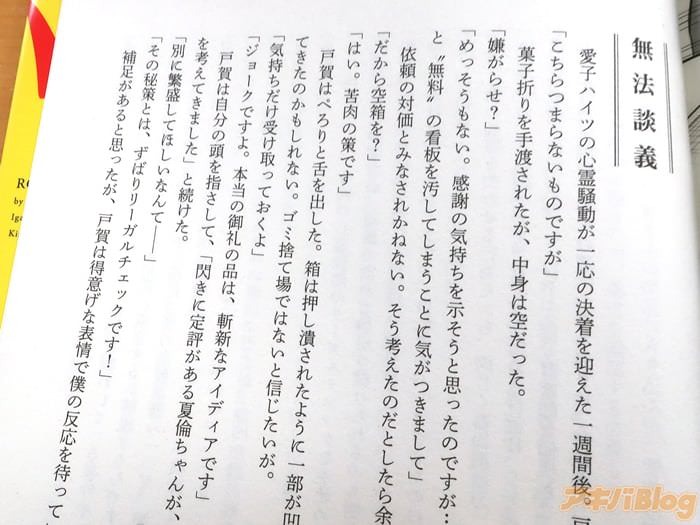 無法談義
愛子ハイツの心霊騒動が一応の決着を迎えた一週間後。戸
「こちらつまらないものですが」
菓子折りを手渡されたが、中身は空だった。
「嫌がらせ？」
「めっそうもない。感謝の気持ちを示そうと思ったのですが…
と〝無料〟の看板を汚してしまうことに気がつきまして」
依頼の対価とみなされかねない。そう考えたのだとしたら余
「だから空箱を？」
「はい。苦肉の策です」
戸賀はぺろりと舌を出した。箱は押し潰されたように一部が凹
できたのかもしれない。ゴミ捨て場ではないと信じたいが。
「気持ちだけ受け取っておくよ」
「ジョークですよ。本当の御礼の品は、斬新なアイディアです」
戸賀は自分の頭を指さして、「閃きに定評がある夏倫ちゃんが、
を考えてきました」と続けた。
「別に繁盛してほしいなんて――」
「その秘策とは、ずばりリーガルチェックです！」
補足があると思ったが、戸賀は得意げな表情で僕の反応を待って
RO
by
Iga
Ki
アキバBlog